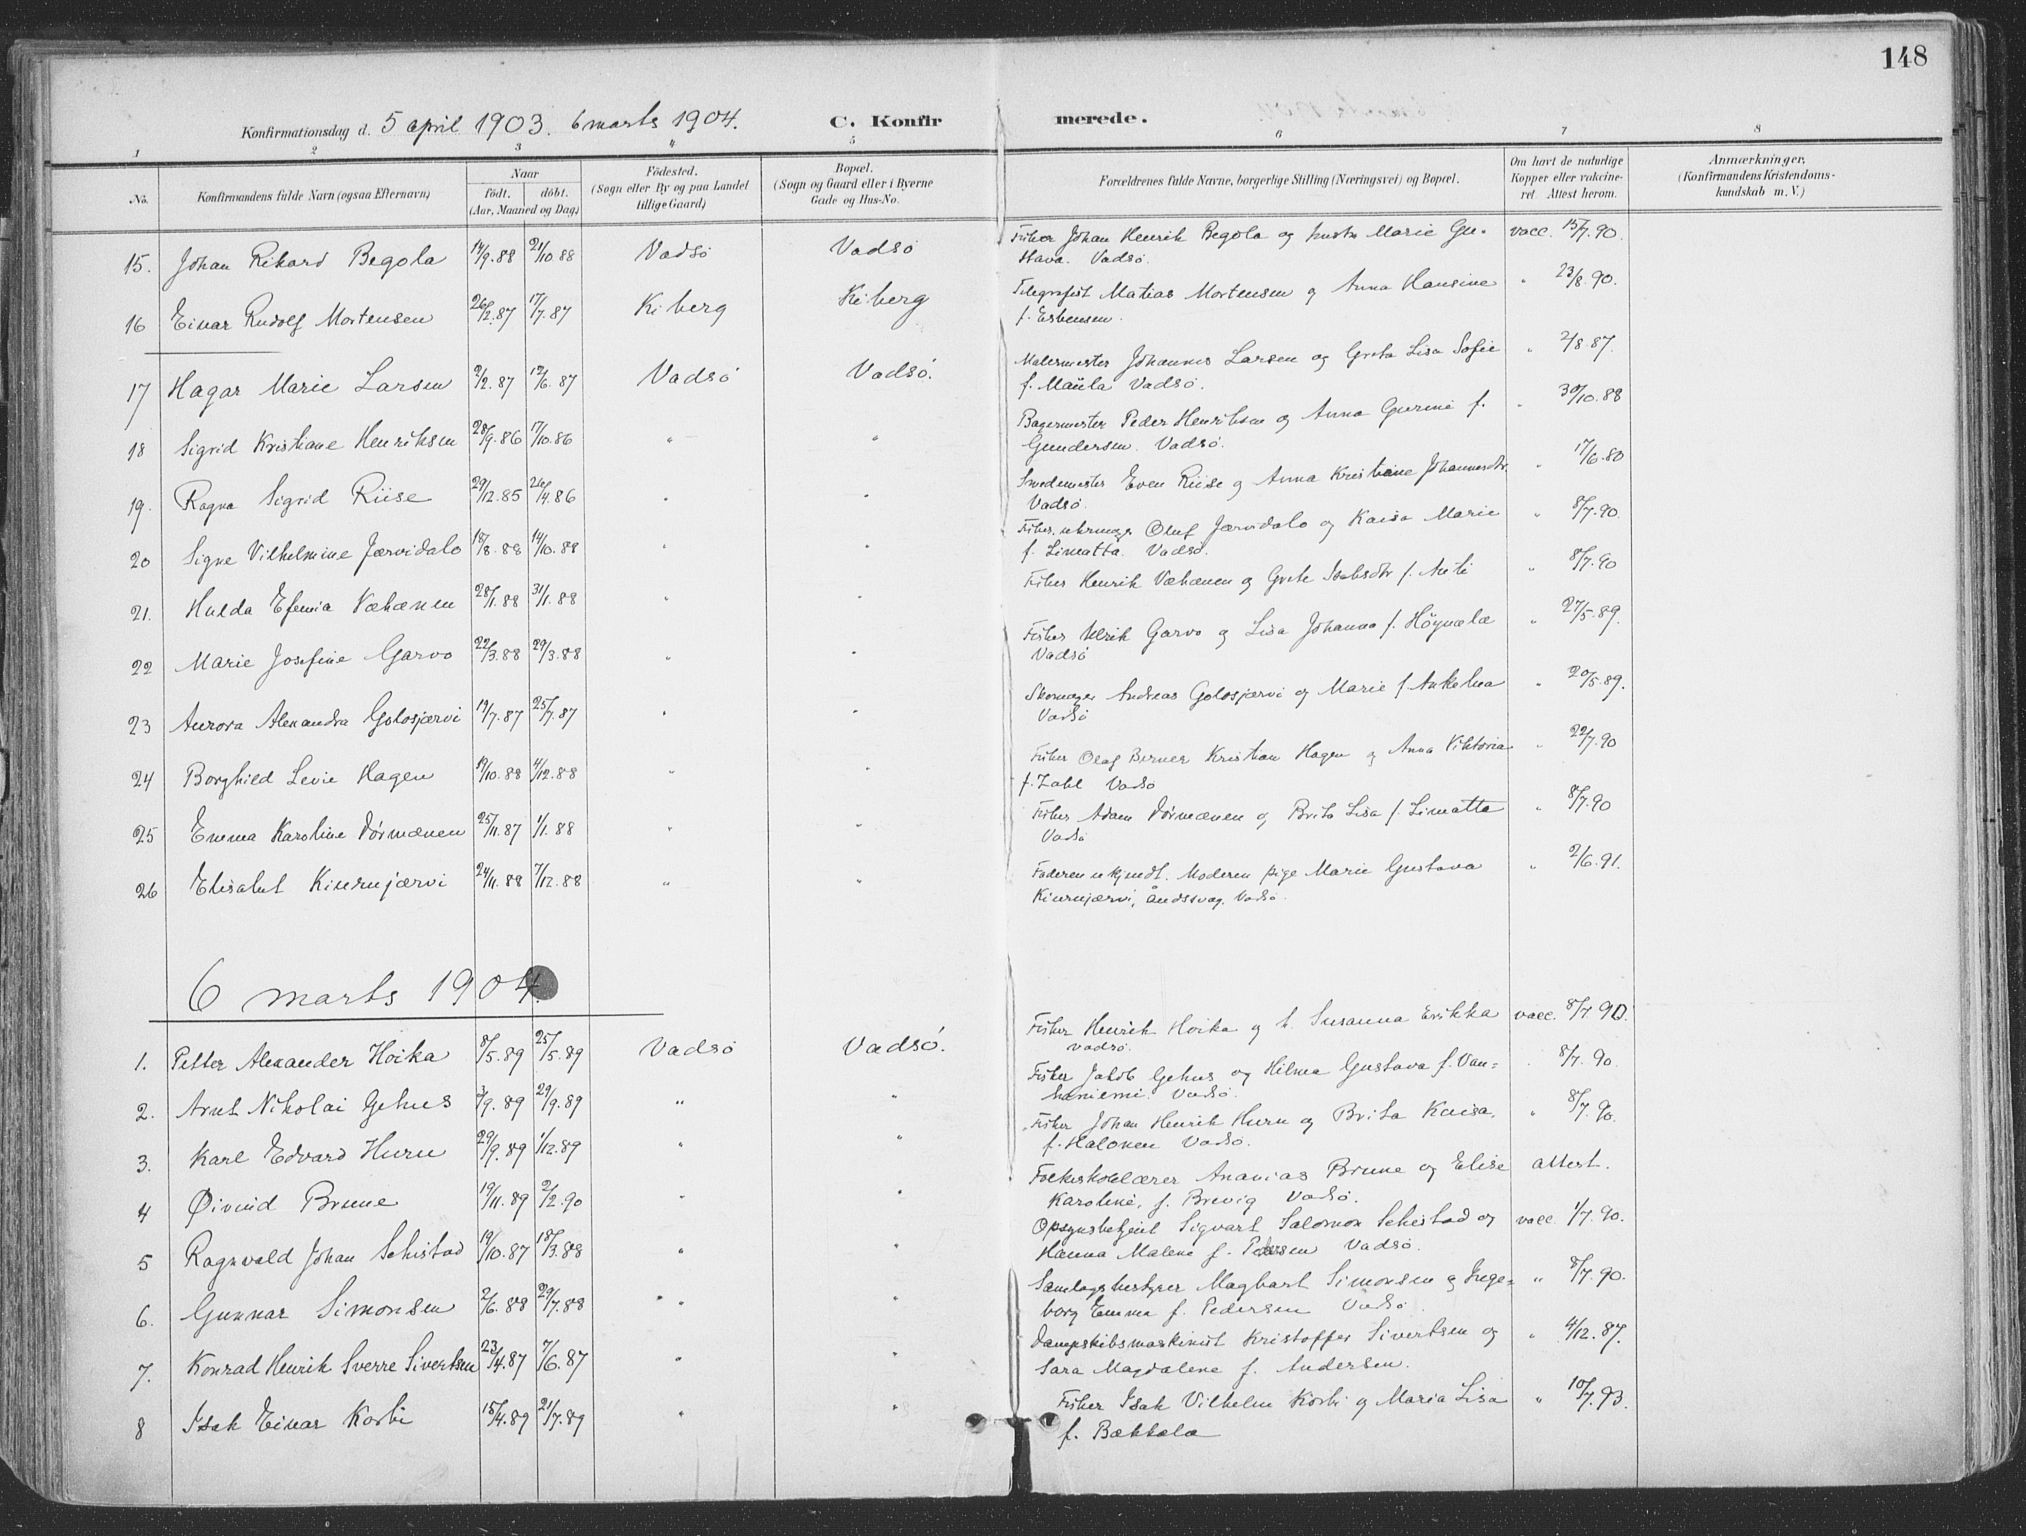 148
Konfirmationsdag d. 5 april 1903. 6 marts 1904. C. Konfirmerede.
1 2 3 4 5 6 7 8
No. Konfirmandens fulde Navn (ogsaa Efternavn) Naar født. døbt. (Aar, Maaned og Dag) Födested. (Sogn eller By og paa Landet tillige Gaard) Bopæl. (Sogn og Gaard eller i Byerne Gade og Hus-No. Forældrenes fulde Navne, borgerlige Stilling (Næringsvei) og Bopæl. Om havt de naturlige Kopper eller vakcineret. Attest herom. Anmærkninger, (Konfirmandens Kristendomskundskab m. V.)
15. Johan Rikard Begola 14/9.88 21/10 88 Vadsö Vadsö Fisker Johan Henrik Begola og hustr Marie Gu- vacc. 15/7.90.
stava. Vadsö.
16 Einar Rudolf Mortensen 26/2.87 17/7.87 Kiberg Kiberg Telegrafist Matias Mortensen og Anna Hansine " 23/8.90.
f. Esbensen.
17 Hagar Marie Larsen 2/2.87 12/6.87 Vadsö Vadsö. Malermester Johannes Larsen og Greta Lisa Sofie " 2/8.87.
f. Maüla Vadsö.
18 Sigrid Kristiane Henriksen 28/9.86 17/10.86 " " Bagermester Peder Henriksen og Anna Gurine f. " 30/10.88
Gundersen. Vadsö.
19. Ragna Sigrid Riise 29/12.85 26/4.86 " " Smedemester Even Riise og Anna Kristiane Johannesdtr. " 17/6.80
Vadsö.
20 Signe Vilhelmine Jærvidalo 18/8.88 14/10.88 " " Oluf Jærvidalo og Kaisa Marie " 8/7.90.
f. Limatta. Vadsö.
21. Hulda Efemia Væhænen 28/1.88 31/1.88 " " Fisker Henrik Væhænen og Grete Isaksdtr f. Anti " 8/7.90
22 Marie Josefine Garvo 22/3.88 29/3.88 " " Fisker Ulrik Garvo og Lisa Johanna f. Höynælæ " 27/5.89.
Vadsö
23 Aurora Alexandra Golosjærvi 19/7.87 25/7.87 " " Skomager Andreas Golosjærvi og Marie f. Ankelna " 20/5.89.
Vadsö
24 Borghild Levie Hagen 19/10.88 4/12.88 " " Fisker Olaf Berner Kristian Hagen og Anna Viktoria " 22/7.90
f. Zahl Vadsö
25 Emma Karoline Dörmænen 25/11.87 1/1.88 " " Fisker Adam Dörmænen og Brita Lisa f. Limatta " 8/7.90
Vadsö
26 Elisabet Kiurujærvi 24/11.88 7/12.88 " " Faderen ukjendt. Moderen pige Marie Gustava " 2/6.91.
Kiurujærvi, åndssvag. Vadsö.
6 marts 1904.
1. Petter Alexander Hoika 8/5.89 25/5.89 Vadsö Vadsö. Fisker Henrik Hoika og h. Susanna Erikka vacc. 8/7.90.
Vadsö.
2. Arnt Nikolai Gehus 3/9.89 29/9.89 " " Fisker Jakob Gehus og Hilma Gustava f. Van= . 8/7.90.
haniemi. Vadsö.
3. Karl Edvard Huru 29/9.89 1/12.89 " " Fisker Johan Henrik Huru og Brita Kaisa, " 8/7.90.
f. Halonen Vadsö.
4 Øivind Brune 19/11.89 2/2.90 " " Folkeskolelærer Ananias Brune og Elise attest.
Karoline, f. Brevig Vadsö.
5 Ragnvald Johan Schistad 19/10.87 18/3.88 " " Opsynsbetjent Sigvart Salomon Schistad og vacc. 1/7.90.
Hanna Malene f. Pedersen Vadsö.
6. Gunnar Simonsen 2/6.88 29/7.88 " " Samlagsbestyrer Magbart Simonsen og Inge= " 8/7.90.
borg Emma f. Pedersen Vadsö.
7. Konrad Henrik Sverre Sivertsen 23/4.87 7/6.87 " " Dampskibsmaskinist Kristoffer Sivertsen og " 4/12.87.
Sara Magdalene f. Andersen.
8 Isak Einar Korbi 15/4.89 21/7.89 " " Fisker Isak Vilhelm Korbi og Maria Lisa " 10/7.93.
f. Bækkala